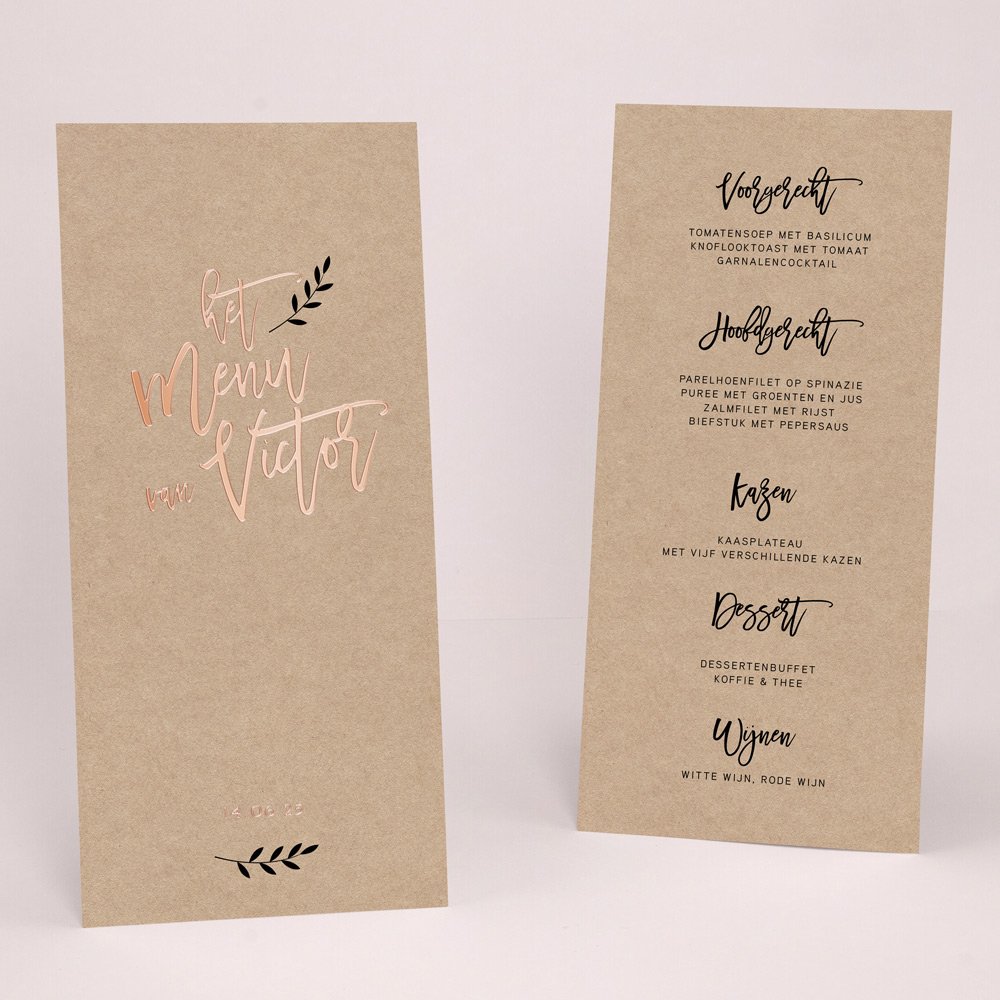 het
Menu
van Victor
14 06 23
Voorgerecht
TOMATENSOEP MET BASILICUM
KNOFLOOKTOAST MET TOMAAT
GARNALENCOCKTAIL
Hoofdgerecht
PARELHOENFILET OP SPINAZIE
PUREE MET GROENTEN EN JUS
ZALMFILET MET RIJST
BIEFSTUK MET PEPERSAUS
Kazen
KAASPLATEAU
MET VIJF VERSCHILLENDE KAZEN
Dessert
DESSERTENBUFFET
KOFFIE & THEE
Wijnen
WITTE WIJN, RODE WIJN